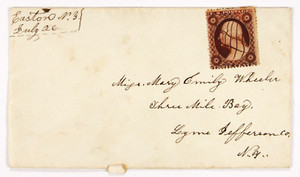 Easton N.Y.
July 26
Miss. Mary Emily Wheeler
Three Mile Bay.
Lyme Jefferson co.
N.Y.